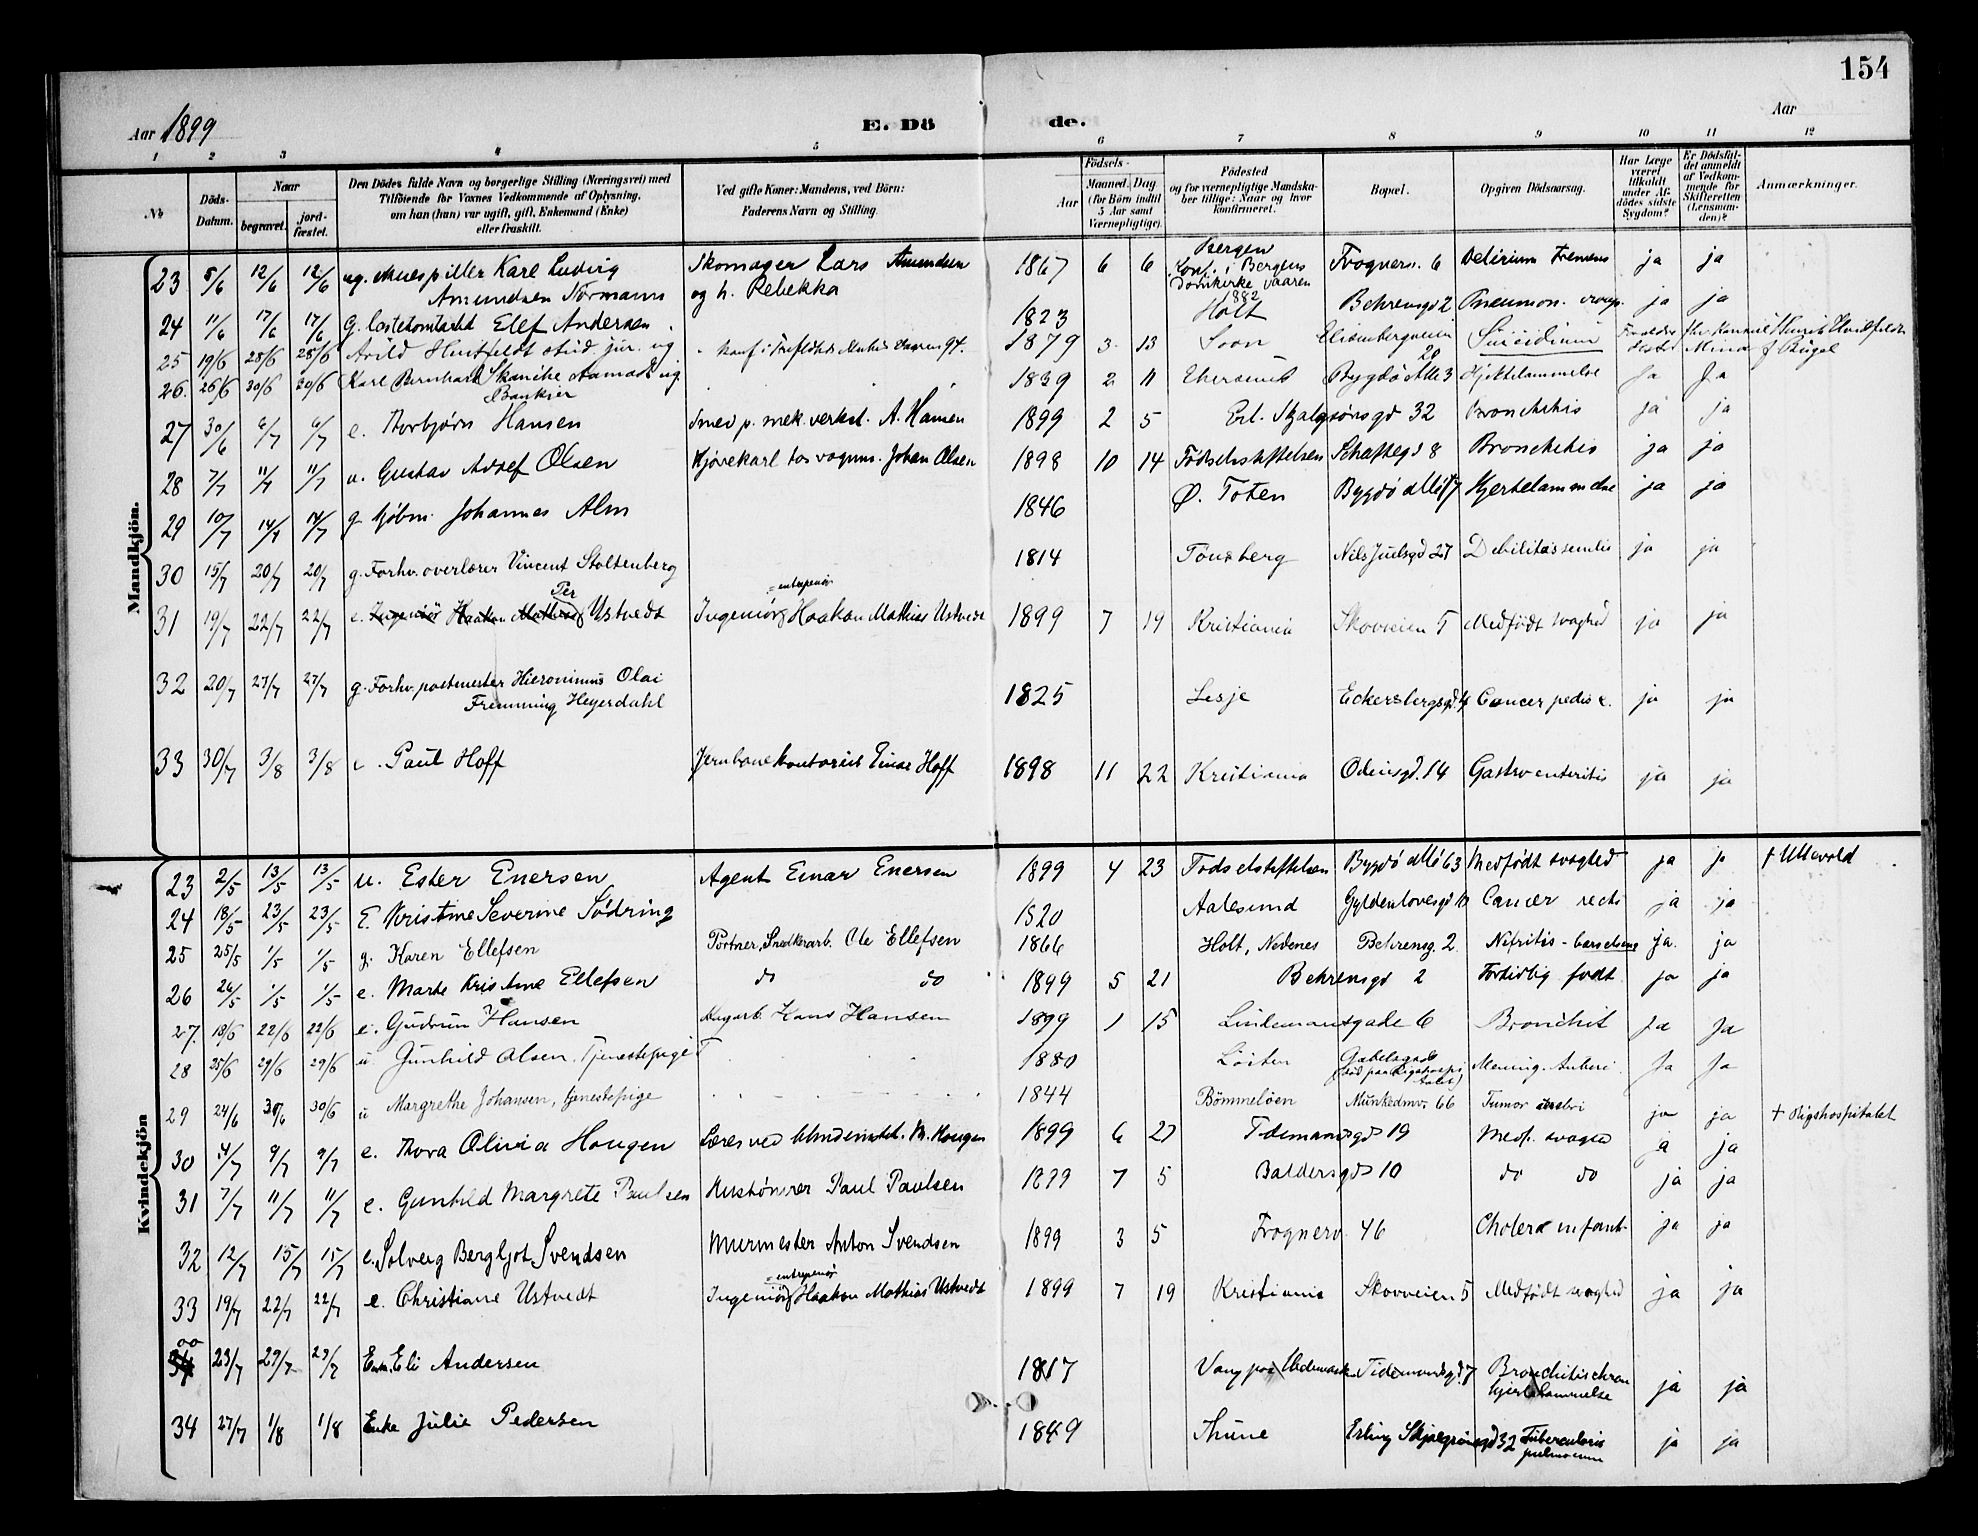 154
Aar 1899
E. Dö de.
Aar
1 2 3 4 5 6 7 8 9 10 11 12
№
Döds-Datum.
Naar
begravet.
jord-fæstet.
Den Dödes fulde Navn og borgerlige Stilling (Næringsvei) med
Tilföiende for Voxnes Vedkommende af Oplysning,
om han (hun) var ugift, gift, Enkemand (Enke)
eller fraskilt.
Ved gifte Koner: Mandens, ved Börn:
Faderens Navn og Stilling.
Födsels-
Aar
Maaned. Dag
(for Börn indtil
5 Aar samt
Værnepligtige).
Födested
og for værnepligtige Mandska-
ber tillige: Naar og hvor
konfirmeret.
Bopæl.
Opgiven Dödsaarsag.
Har Læge
været
tilkaldt
under Af-
dödes sidste
Sygdom?
Er Dödsfal-
det anmeldt
af Vedkom-
mende for
Skifteretten
(Lensman-
den)?
Anmærkninger.
Mandkjön.
23 5/6 12/6 12/6 ug. Musespiller Karl Ludvig Skomager Lars Amundsen 1867 6 6 Bergen Frognerv. 6 Delirium Tremens ja ja
Amundsen Normann og h. Rebekka Konf. i Bergens
Domkirke vaaren
1882
24 11/6 17/6 17/6 g. Elef Andersen 1823 Holt Behrensgd 2 Pneumon. croup. ja ja
25 19/6 28/6 28/6 Arild Huitfeldt stud. jur. ug 1879 3 13 Soon Elisenbergveien 20 Suicidium
26. 26/6 30/6 30/6 Karl Bernhard Skanche ug. 1839 2 11 Bygdö Alle 3 Hjertelammelse Ja Ja
Bankier
27 30/6 6/7 6/7 e. Thorbjørn Hansen Smed p. mek. verkst. A. Hansen 1899 2 5 Erl. Skjalgsönsgd 32 Bronchitis ja ja
28 7/7 11/7 11/7 u. Gustav Adolf Olsen Johan Olsen 1898 10 14 Födselsstiftelsen Schaftegd 8 Bronchitis ja ja
29 10/7 14/7 14/7 g. kjöbm. Johannes Alm 1846 Ø. Toten Bygdö allé 17 Hjertelammelse ja ja
30 15/7 20/7 20/7 g. Forhv. overlærer Vincent Stoltenberg 1814 Tönsberg Nils Juelsgd 27 Debilitas senilis ja ja
31 19/7 22/7 22/7 e. Ingeniör Haakon Mathias Per Ustvedt Ingeniör = entrepenör Haakon Mathias Ustvedt 1899 7 19 Kristiania Skovveien 5 Medfödt svaghed ja ja
32 20/7 27/7 27/7 g. Forhv. postmester Hieronimus Olai 1825 Lesje Eckersbergsgd. 4 Cancer pedis ja ja
Fremming Heyerdahl
33 30/7 3/8 3/8 e. Paul Hoff Jernbanekontorist Einar Hoff 1898 11 22 Kristiania Odinsgd. 14 Gastroenteritis ja ja
Kvindekjön
23 2/5 13/5 13/5 u. Ester Enersen Agent Einar Enersen 1899 4 23 Födselsstiftelsen Bygdö allé 63 Medfödt svaghed ja ja † Ullevold
24 18/5 23/5 23/5 E. Kristine Severine Södring 1820 Aalesund Gyldenlovesgd 10 Cancer recti ja ja
25 25/5 1/5 1/5 g. Karen Ellefsen Portner, Snedkerarb. Ole Ellefsen 1866 Holt, Nedenes Behrensg. 2 Nefritis - barselseng ja ja
26 26/5 1/5 1/5 e. Marte Kristine Ellefsen do do 1899 5 21 Behrensgd 2 Fortidlig födt ja ja
27. 18/6 22/6 22/6 e. Gudrun Hansen Hans Hansen 1899 1 15 Lindemansgade 6 Bronchit Ja Ja
28 25/6 29/6 29/6 u Gunhild Olsen. Tjenestepige 1880 Löiten Gabelsgade Mening. tuberc. Ja Ja
(död paa Rigshospitalet)
29 24/6 30/6 30/6 u Margrethe Johansen, tjenestepige 1844 Bömmeløen Munkedmv. 66 Tumor cerebri ja ja † Rigshospitalet
30 4/7 9/7 9/7 e. Thora Olivia Hougen Lærer ved blindeinstit. M. Hougen 1899 6 27 Tidemansgd 19 Medf. svaghed ja ja
31 7/7 11/7 11/7 e. Gunhild Margrete Paulsen Paul Paulsen 1899 7 5 Baldersgd 10 do do ja ja
32 12/7 15/7 15/7 e. Solveig Bergljot Svendsen Murmester Anton Svendsen 1899 3 5 Frognerv. 46 Cholera infant. ja ja
33 19/7 22/7 22/7 e. Christiane Ustvedt Ingeniör = entrepenör Haakon Mathias Ustvedt 1899 7 19 Kristiania Skovveien 5 Medfödt svaghed ja ja
34 23/7 29/7 29/7 Enk. Eli Andersen 1817 Vang paa Hedemark Tidemandsgd. 7 Bronchitis chron ja ja
hjertelammelse
34 27/7 1/8 1/8 Enke Julie Pedersen 1849 Erling Skjalgsönsgd 32 Tuberculosis ja ja
pulmonum